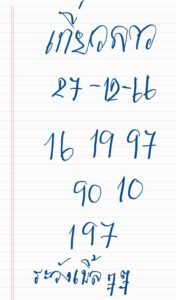 เกี่ยวลาว
27-12-66
16 19 97
90 10
197
ระวังเบิ้ล 77